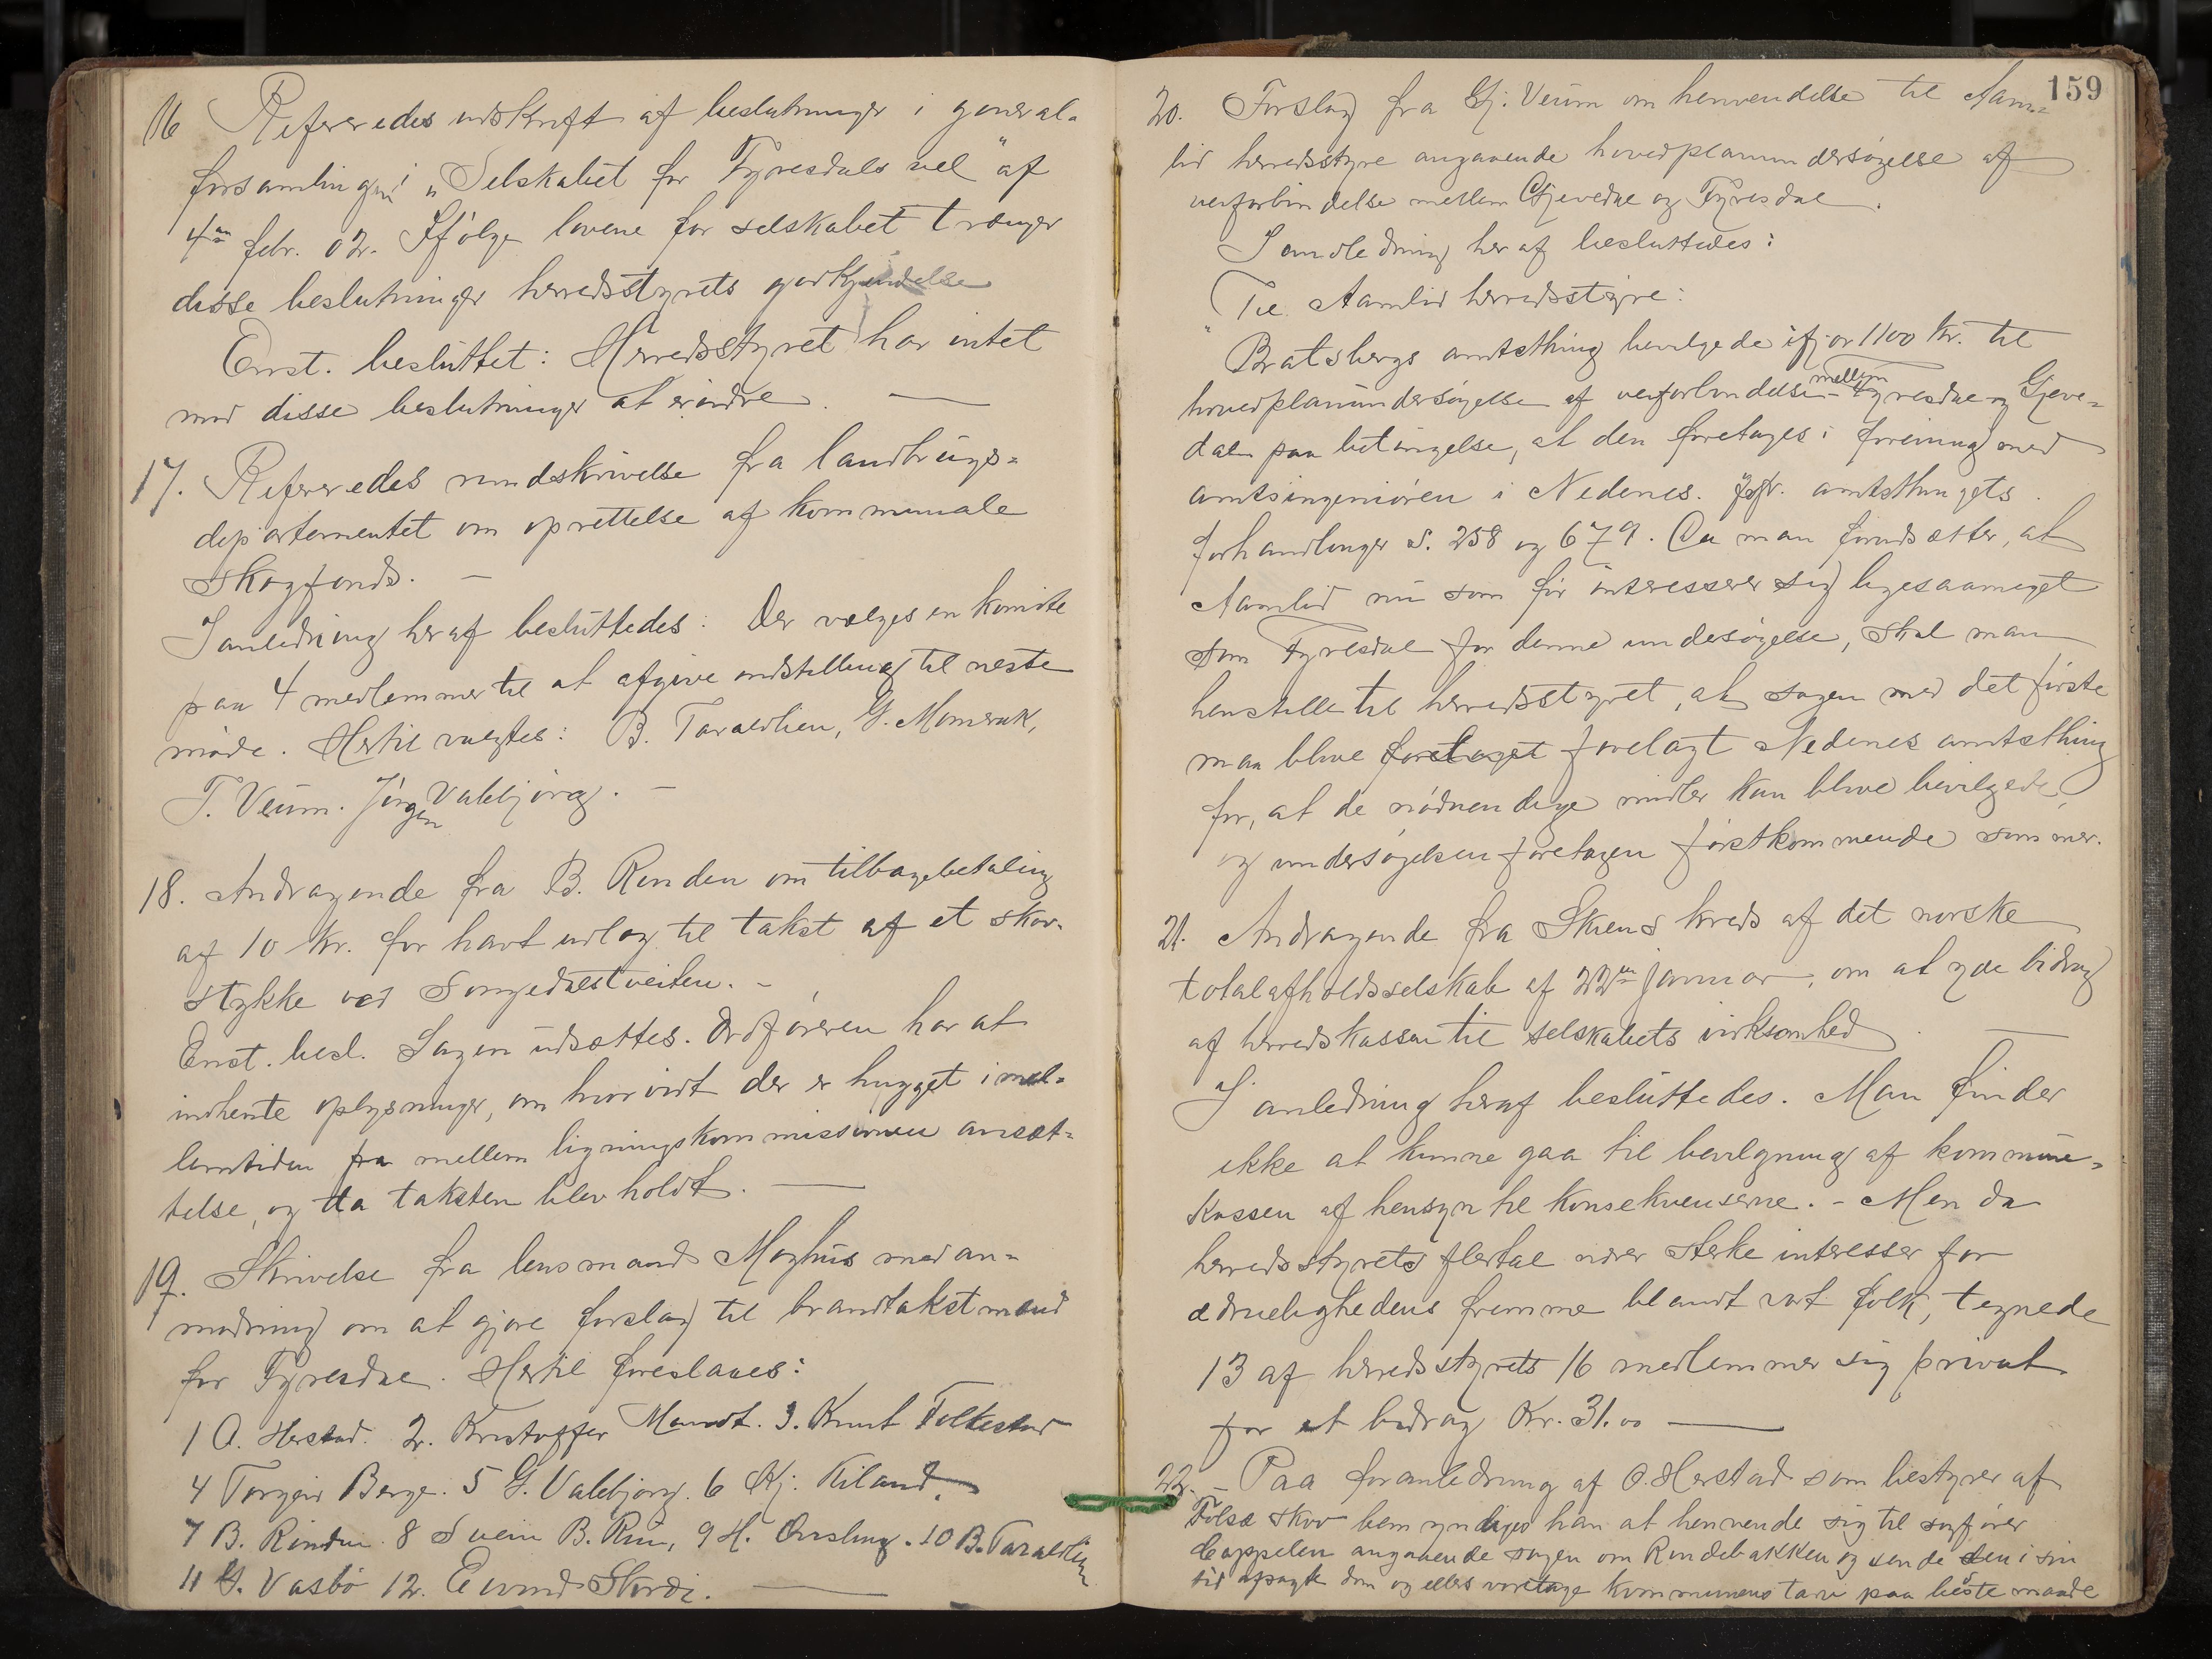 16 Refereredes udskrift af beslutninger i general-
forsamlingen i „Selskabet for Tyresdals vel" af
4de febr. 02. Ifölge lovene for selskabet trænger
disse beslutninger herredsstyrets godkjendelse
Enst. besluttet: Herredsstyret har intet
mod disse beslutninger at erindre. —
17. Refereredes rundskrivelse fra landbrugs-
departementet om oprettelse af kommunale
skogfonds. —
I anledning heraf besluttedes: Der vælges en komite
paa 4 medlemmer til at afgive indstilling til neste
möde. Hertil valgtes: B. Taraldlien, G. Momrak,
T. Veum. Jörgen Valebjörg. —
18. Andragende fra B. Rinden om tilbagebetaling
af 10 Kr. for havt udlæg til takst af et skov-
stykke ved Songedalstveiten. –
Enst. besl. Sagen udsættes. Ordföreren har at
indhente oplysninger, om hvorvidt der er hugget i mel-
lemtiden fra mellem ligningskommissionens ansæt-
telse, og da taksten blev holdt. —
19. Skrivelse fra lensmand Moghus med an-
modning om at gjöre forslag til brandtakstmænd
for Tyresdal. Hertil foreslaaes:
1 O. Herstad. 2. Kristoffer Mandt. 3. Knut Folkestad
4 Torgeir Berge. 5 G. Valebjörg. 6 Kj. Kiland.
7 B. Rinden. 8 Svein B. Rui, 9 H. 10 B. Taraldlien
11 G. Vasbö 12. Eivind Skordi. —
159
20. Forslag fra Gj. Veum om henvendelse til Aam-
lid herredsstyre angaaende hovedplanundersøgelse af
veiforbindelse mellem Gjevedal og Tyresdal.
I anledning heraf besluttedes:
Til Aamlid herredsstyre:
"Bratsbergs amtsthing bevilgede ifjor 1100 Kr. til
hovedplanundersøgelse af veiforbindelse mellem Tyresdal og Gjeve-
dal paa betingelse, at den foretages i forening med
amtsingeniören i Nedenes. Jfr. amtsthingets
forhandlinger s. 258 og 679. Da man forudsætter, at
Aamlid nu som för interesserer sig ligesaameget
som Tyresdal for denne undesøgelse, skal man
henstille til herredsstyret, at sagen med det förste
maa blive foretaget forelagt Nedenes amtsthing
for, at de nödvendige midler kan blive bevilgede,
og undersøgelsen foretagen förstkommende sommer.
21. Andragende fra Skiens kreds af det norske
totalafholdsselskab af 22de januar, om at yde bidrag
af herredskassen til selskabets virksomhed. —
I anledning heraf besluttedes. Man finder
ikke at kunne gaa til bevilgning af kommune-
kassen af hensyn til konsekvenserne. – Men da
herredsstyrets flertal nærer sterke interesser for
ædruelighedens fremme blandt vort folk, tegnede
13 af herredsstyrets 16 medlemmer sig privat
for et bidrag Kr. 31.00 —
22. – Paa foranledning af O. Herstad som bestyrer af
Folsæ skov bemyndiges han at henvende sig til sagförer
Cappelen angaaende sagen om Rindebakken og sende den i sin
tid afsagte dom og ellers varetage kommunens tarv paa beste maade